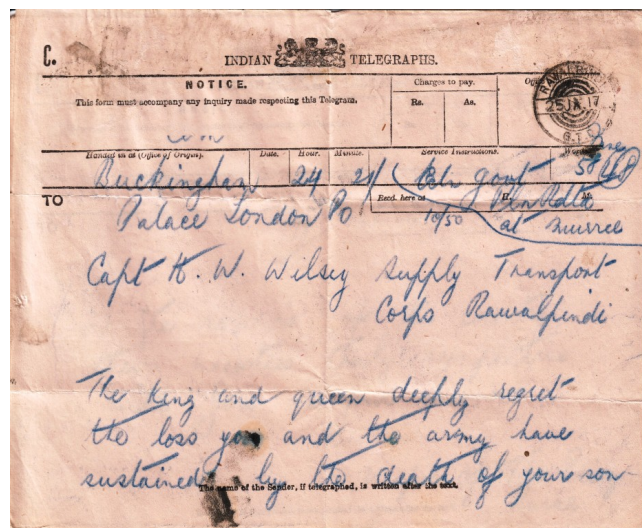 C.
INDIAN TELEGRAPHS.
NOTICE.
This form must accompany any inquiry made respecting this Telegram.
Charges to pay.
Rs. As.
25 17
Handed in at (Office of Origin). Date. Hour. Minute. Service Instructions.
Buckingham 24 21/ Govt
TO
Palace London Po
Recd. here at 10/50 H. M.
at Murree
Capt H. W. Wilsey Supply Transport
Corps Rawalpindi
The King and queen deeply regret
the loss you and the army have
sustained by the death of your son
The name of the Sender, if telegraphed, is written after the text.